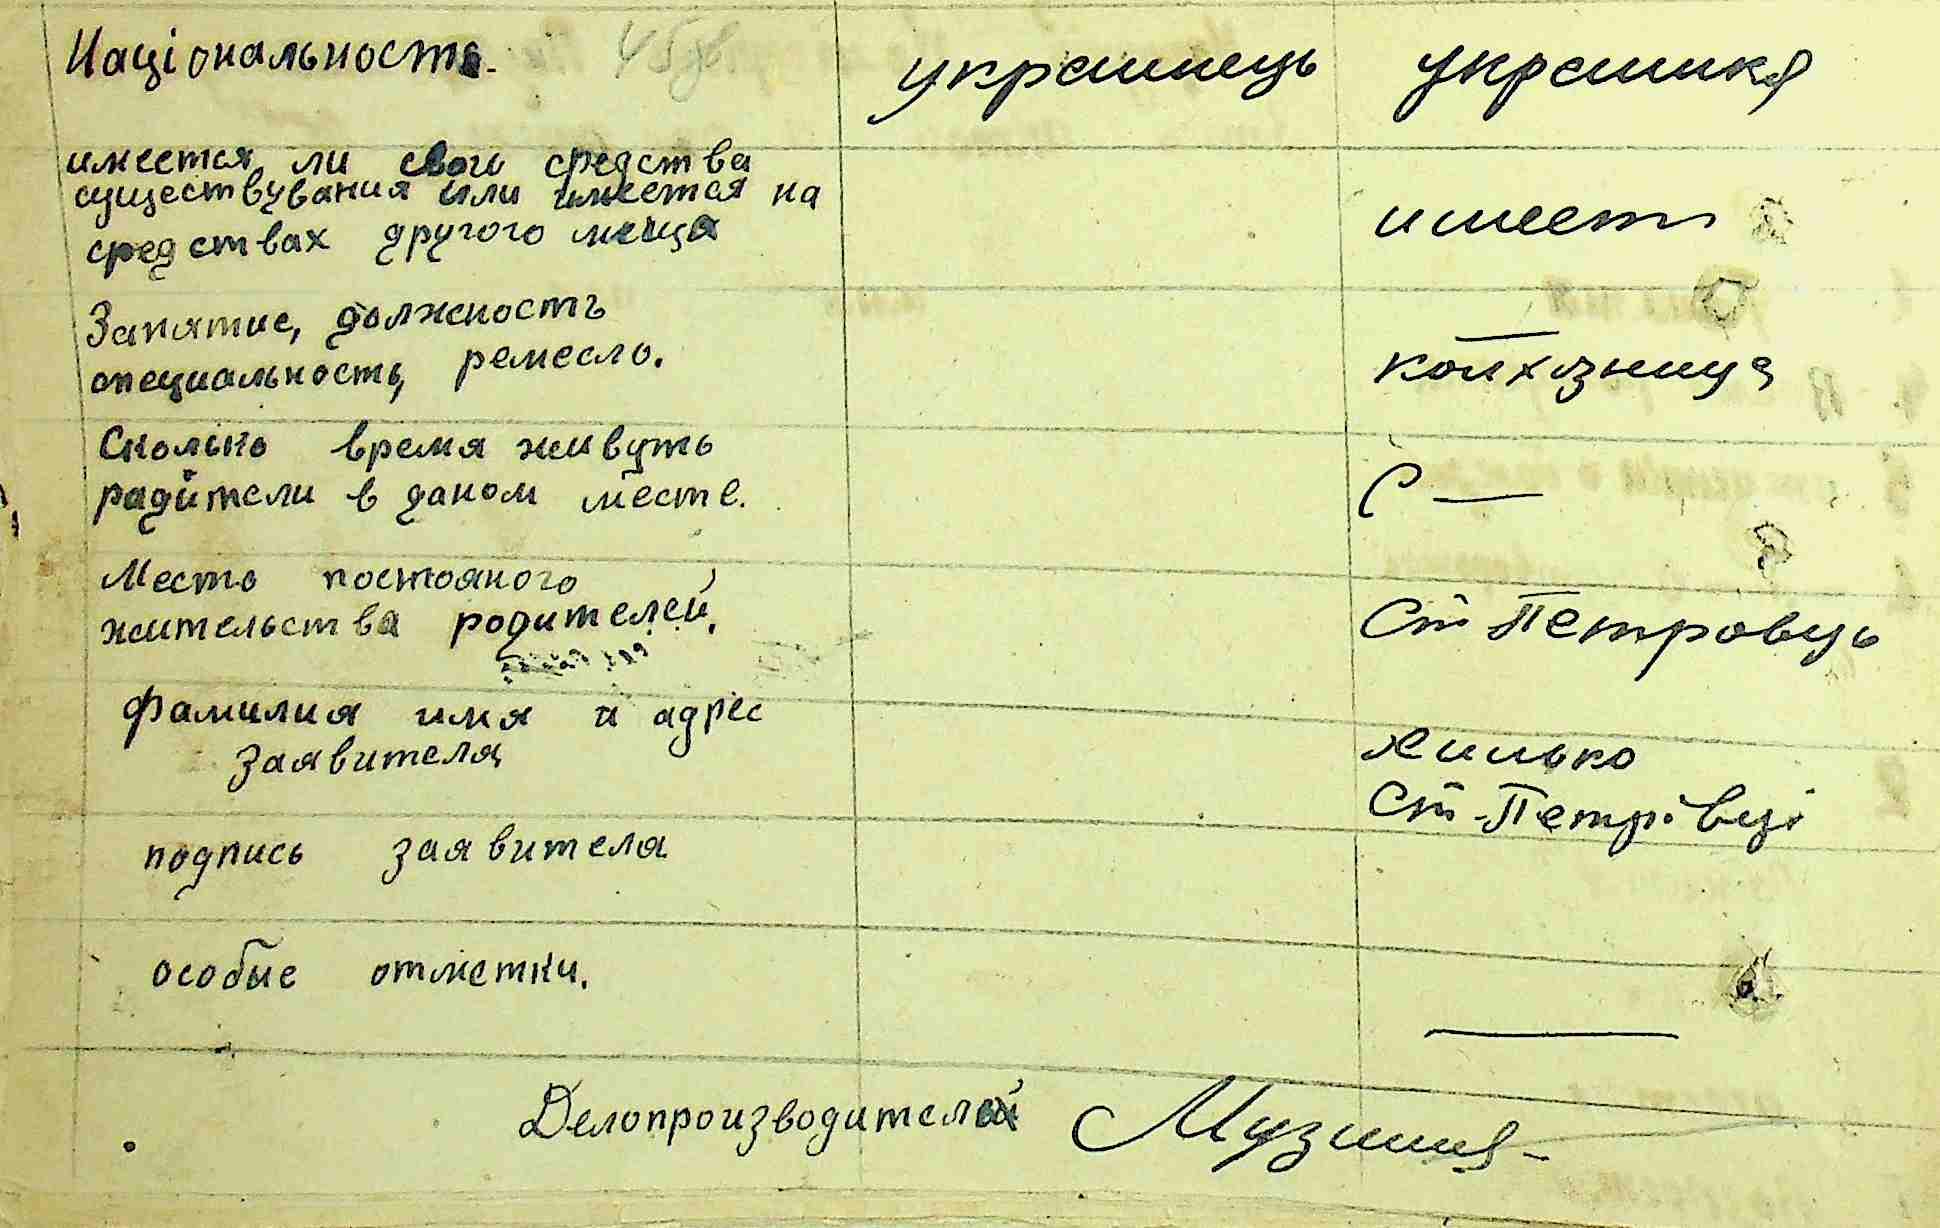 Національность. украинець украинка
имеется ли свои средства
существувания или имеется на
средствах другого лица имеет
Занятие, должность
специальность, ремесло. колхозница
Сколько время живуть
радители в даном месте. С —
Место постояного
жительства родителей. Ст Петровць
Фамилия имя и адрес
заявителя Хилько
Ст-Петрівці
подпись заявителя
особые отметки. —
Делопроизводителей